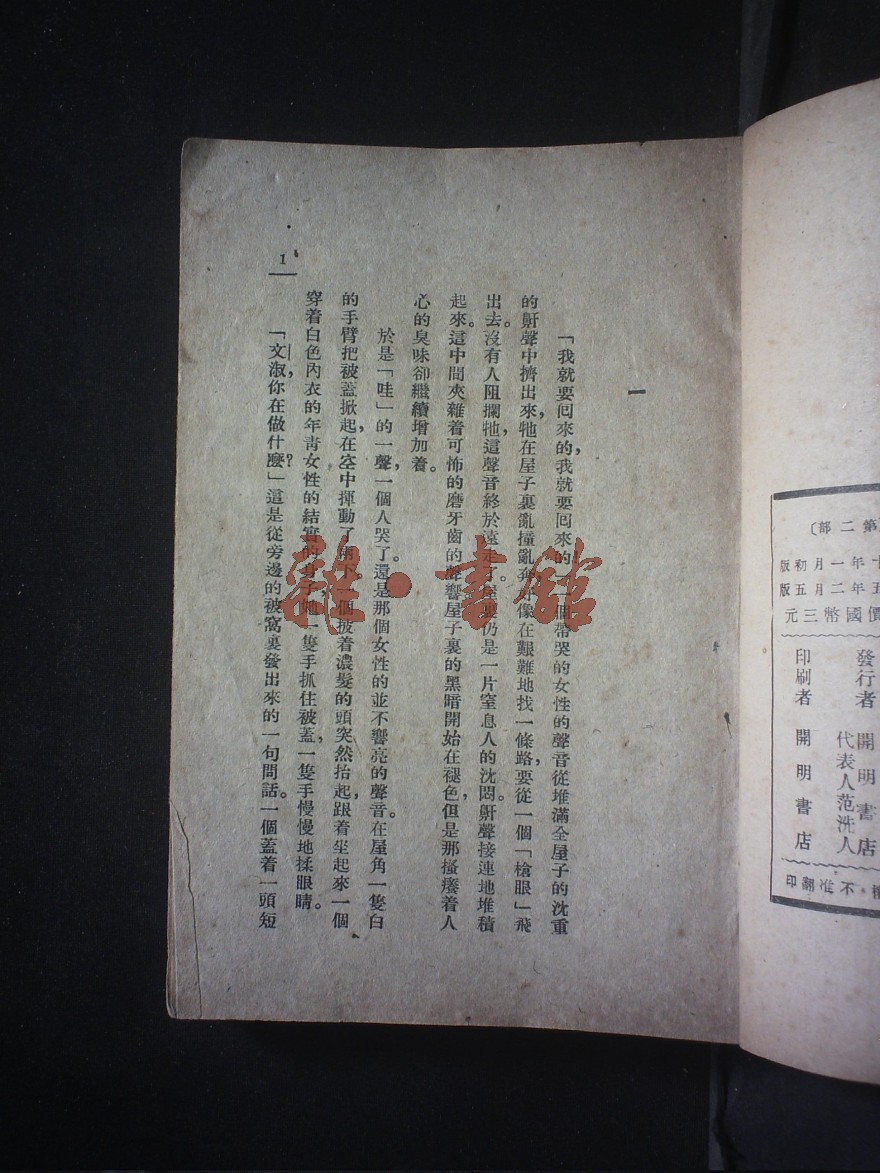 第二部〕
十年一月初版
五年二月五版
價國幣三元
發行者 開明書店
代表人范洗人
印刷者 開明書店
不准翻印
一
「我就要回來的，我就要回來的，一個帶哭的女性的聲音從堆滿全屋子的沈重
的鼾聲中擠出來，牠在屋子裏亂撞亂奔，好像在艱難地找一條路，要從一個「槍眼」飛
出去。沒有人阻攔牠，這聲音終於遠走了。屋裏仍是一片窒息人的沈悶。鼾聲接連地堆積
起來。這中間夾雜着可怖的磨牙齒的聲響。屋子裏的黑暗開始在褪色，但是那搔癢着人
心的臭味卻繼續增加着。
於是「哇」的一聲，一個人哭了。還是那個女性的並不響亮的聲音。在屋角一隻白
的手臂把被蓋掀起，在空中揮動了兩下。一個披着濃髮的頭突然抬起，跟着坐起來一個
穿着白色內衣的年青女性的結實的身子。她一隻手抓住被蓋，一隻手慢慢地揉眼睛。
「文淑，你在做什麼？」這是從旁邊的被窩裏發出來的一句問話。一個蓋着一頭短
1
雜·書館